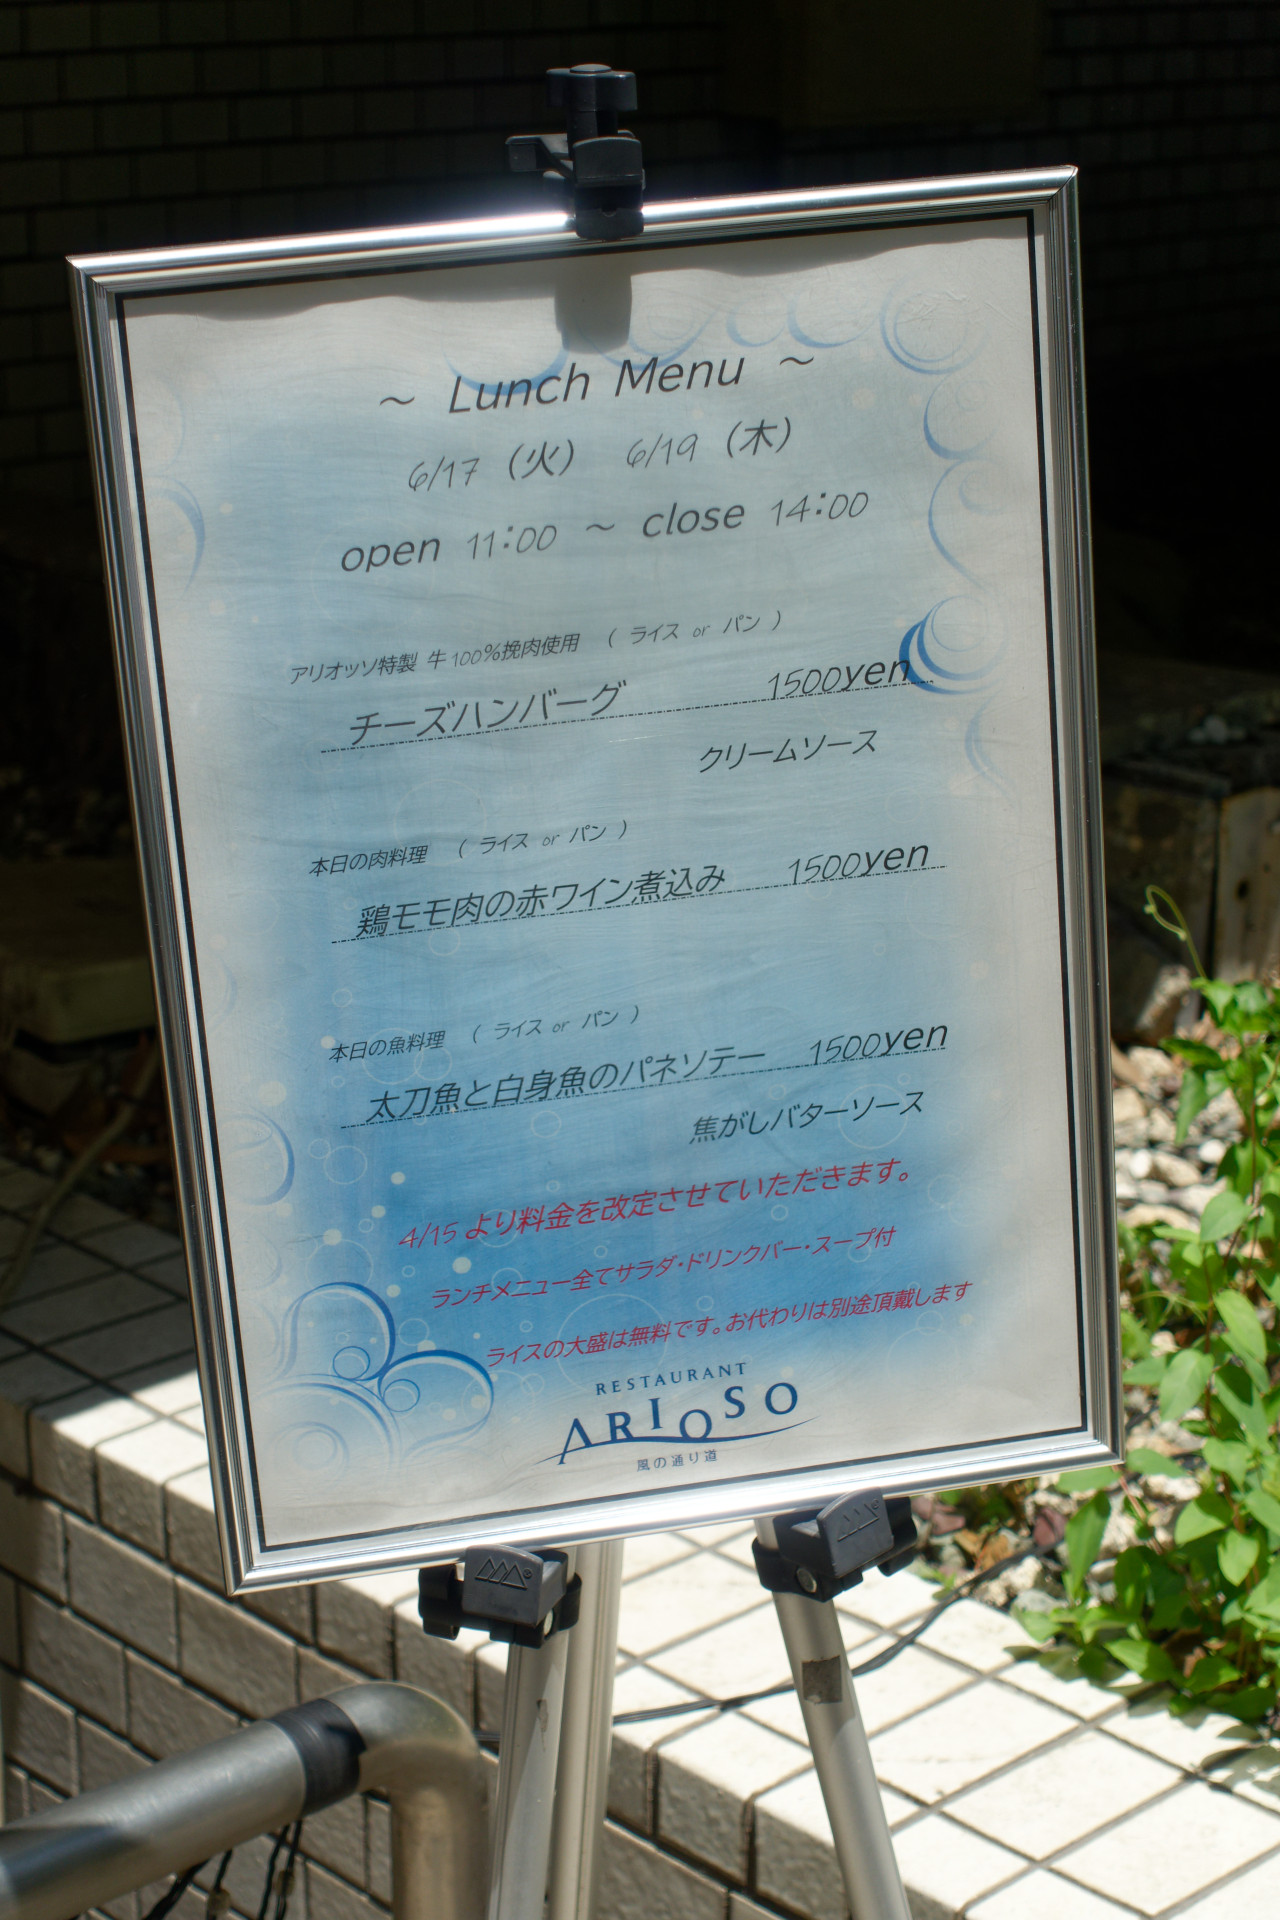 ~ Lunch Menu ~
6/17 (火) 6/19 (木)
open 11:00 ~ close 14:00
アリオッソ特製 牛100%挽肉使用 ( ライス or パン )
チーズハンバーグ 1500yen
クリームソース
本日の肉料理 ( ライス or パン )
鶏モモ肉の赤ワイン煮込み 1500yen
本日の魚料理 ( ライス or パン )
太刀魚と白身魚のパネソテー 1500yen
焦がしバターソース
4/15より料金を改定させていただきます。
ランチメニュー全てサラダ・ドリンクバー・スープ付
ライスの大盛は無料です。お代わりは別途頂戴します
RESTAURANT
ARIOSO
風の通り道